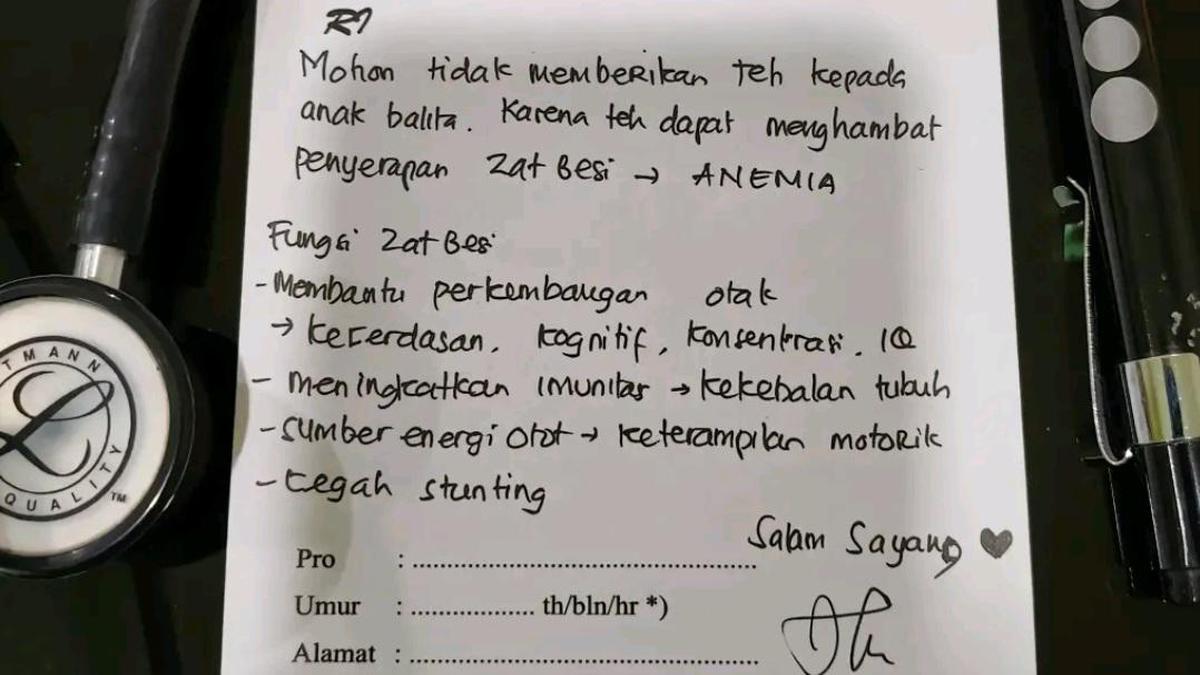 R/
Mohon tidak memberikan teh kepada
anak balita. Karena teh dapat menghambat
penyerapan zat Besi → ANEMIA
Fungsi Zat Besi
- Membantu perkembangan otak
→ kecerdasan, kognitif, konsentrasi, IQ
- meningkatkan imunitas → kekebalan tubuh
- sumber energi otot → keterampilan motorik
- cegah stunting
Salam Sayang ♥
Pro : ..........................................................
Umur : .................. th/bln/hr *)
Alamat : ..........................................................
TMANN
QUALITY™